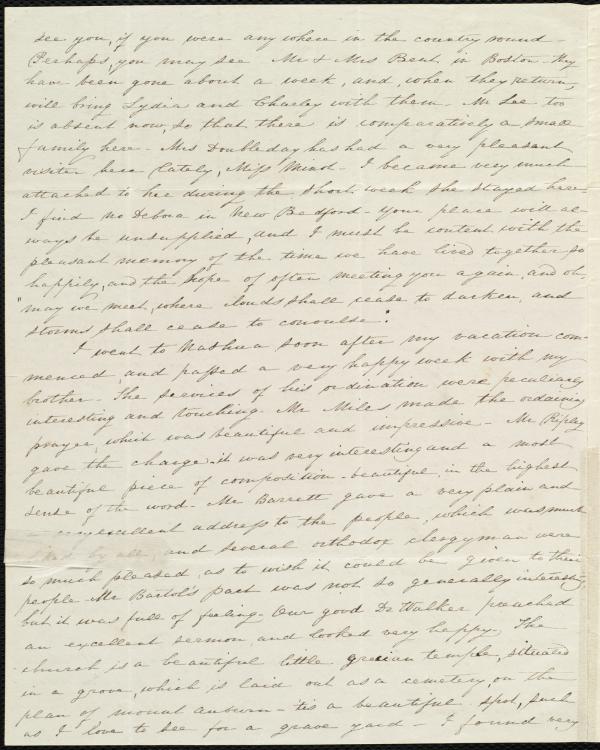 see you, if you were any where in the country round -
Perhaps, you may see Mr & Mrs Bent in Boston - they
have been gone about a week, and, when they return,
will bring Lydia and Charley with them - Mr Lee too
is absent now, so that there is comparatively a small
family here - Mrs Doubleday has had a very pleasant
visiter here lately, Miss Minot - I became very much
attached to her during the short week she stayed here.
I find no Debora in New Bedford - your place will al-
ways be unsupplied, and I must be content with the
pleasant memory of the time we have lived together so
happily, and the hope of often meeting you again, and oh,
"may we meet, where clouds shall cease to darken, and
storms shall cease to convulse".
I went to Nashua soon after my vacation com-
menced, and passed a very happy week with my
brother - The services of his ordination were peculiarly
interesting and touching. Mr Miles made the ordaining
prayer, which was beautiful and impressive - Mr Ripley
gave the charge - it was very interesting and a most
beautiful piece of composition - beautiful, in the highest
sense of the word - Mr Barrett gave a very plain and
excellent address to the people, which was much
by all, and several orthodox clergyman were
so much pleased, as to wish it could be given to their
people - Mr Bartol's part was not so generally interesting,
but it was full of feeling - Our good Dr Walker preached
an excellent sermon, and looked very happy. The
church is a beautiful little grecian temple, situated
in a grove, which is laid out as a cemetery, on the
plan of mount auburn - tis a beautiful spot, such
as I love to see for a grave yard - I found very